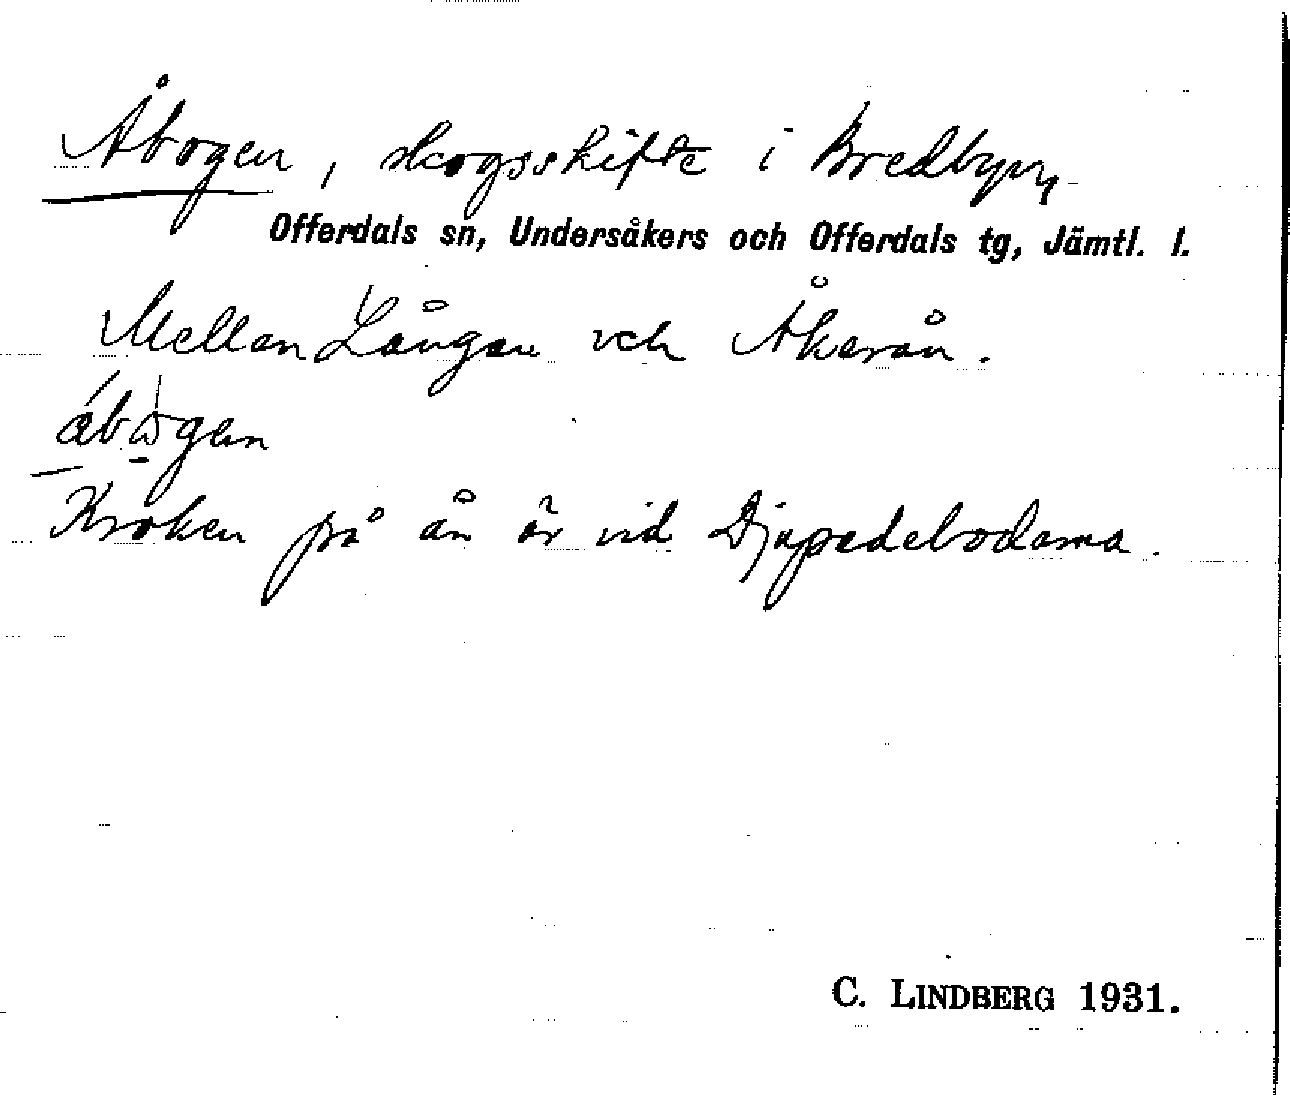 Åbogen, skogsskifte i Bredbyn,
Offerdals sn, Undersåkers och Offerdals tg, Jämtl. l.
Mellan Långan och Åkerån.
ábògen
Kroken på ån är vid Djupedebodarna.
C. LINDBERG 1931.